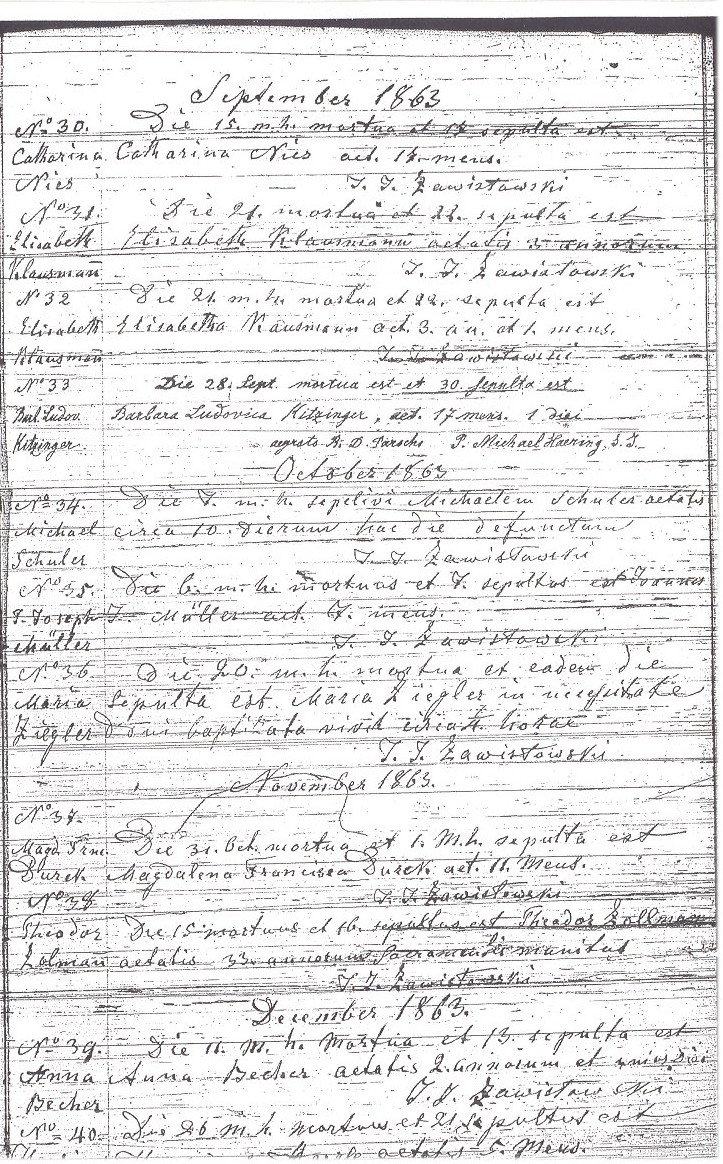 September 1863
No 30. Die 15. m.h. mortua et 17 sepulta est
Catharina Catharina Nies aet. 17 mens.
Nies J. J. Zawistowski
No 31. Die 21. mortua et 22. sepulta est
Elisabeth Elisabeth Klausmann aetatis 3 annorum
Klausmann J. J. Zawistowski
No 32 Die 21. m.h. mortua et 22. sepulta est
Elisabeth Elisabetha Klausmann aet. 3. an. et 1. mens.
Klausman J. J. Zawistowski
No 33 Die 28. Sept. mortua est et 30. sepulta est
Barb. Ludov. Barbara Ludovica Kitzinger, aet. 17 mens. 1 diei
Kitzinger aegroto R. D. Parocho P. Michael Haering, S. J.
October 1863
No 34. Die 7. m.h. sepelivi Michaelem Schuler aetatis
Michael circa 10. dierum hac die defunctum
Schuler J. J. Zawistowski
No 35. Die 6. m.h. mortuus et 7. sepultus est Joannes
J. Joseph J. Müller aet. 7. mens.
Müller J. J. Zawistowski
No 36 Die 20. m.h. mortua et eadem die
Maria sepulta est Maria Ziegler in necessitate
Ziegler Domi baptizata vixit circa horae
J. J. Zawistowski
November 1863.
No 37.
Magd. Frnc. Die 31. Oct. mortua et 1. m.h. sepulta est
Durck Magdalena Francisca Durck aet. 11. Mens.
No 38 J. J. Zawistowski
Theodor Die 15 mortuus et 16. sepultus est Theodor Zollmann
Zolman aetatis 33. annorum Sacramentis munitus
J. J. Zawistowski
December 1863.
No 39. Die 11. m.h. mortua et 13. sepulta est
Anna Anna Becher aetatis 2. annorum et unius Diei
Becher J. J. Zawistowski
No 40. Die 26 m.h. mortuus et 27 sepultus est
aetatis 5. Mens.